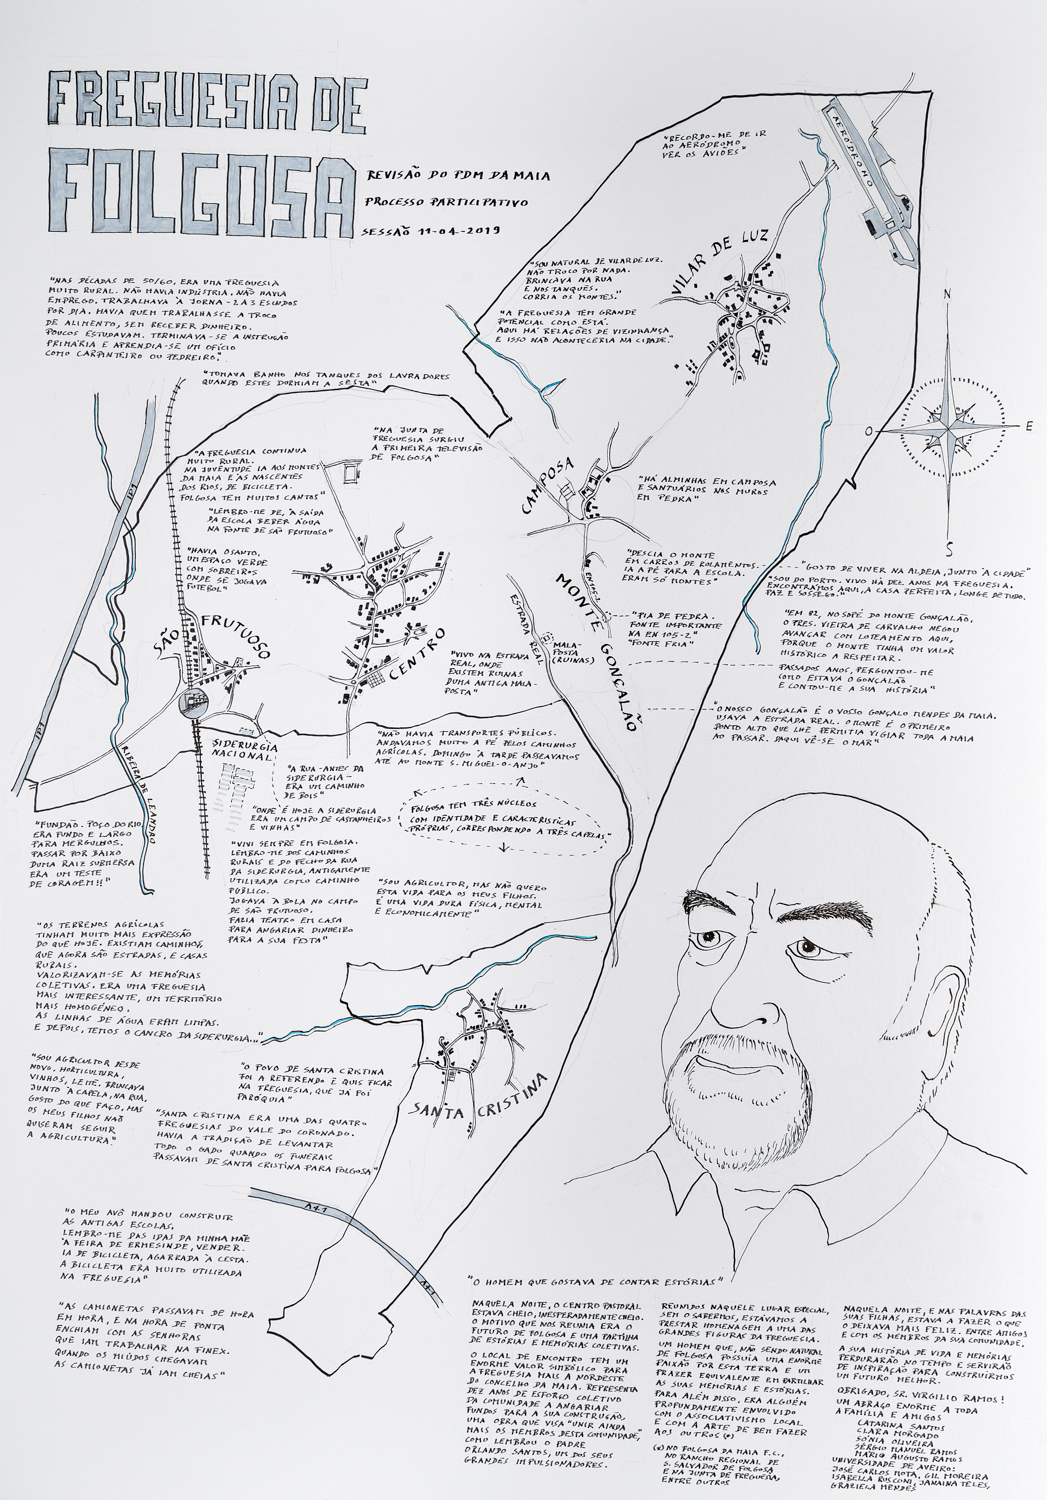 FREGUESIA DE
FOLGOSA
REVISÃO DO PDM DA MAIA
PROCESSO PARTICIPATIVO
SESSÃO 11-04-2019
"NAS DÉCADAS DE 50/60, ERA UMA FREGUESIA
MUITO RURAL. NÃO HAVIA INDÚSTRIA. NÃO HAVIA
EMPREGO. TRABALHAVA À JORNA - 2 A 3 ESCUDOS
POR DIA. HAVIA QUEM TRABALHASSE A TROCO
DE ALIMENTO, SEM RECEBER DINHEIRO.
POUCOS ESTUDAVAM. TERMINAVA-SE A INSTRUÇÃO
PRIMÁRIA E APRENDIA-SE UM OFÍCIO
COMO CARPINTEIRO OU PEDREIRO."
"TOMAVA BANHO NOS TANQUES DOS LAVRADORES
QUANDO ESTES DORMIAM A SESTA"
"RECORDO-ME DE IR
AO AERÓDROMO
VER OS AVIÕES"
AERÓDROMO
"SOU NATURAL DE VILAR DE LUZ.
NÃO TROCO POR NADA.
BRINCAVA NA RUA
E NOS TANQUES.
CORRIA OS MONTES."
VILAR DE LUZ
"A FREGUESIA TEM GRANDE
POTENCIAL COMO ESTÁ.
AQUI HÁ RELAÇÕES DE VIZINHANÇA
E ISSO NÃO ACONTECERIA NA CIDADE."
N
O
E
S
"NA JUNTA DE
FREGUESIA SURGIU
A PRIMEIRA TELEVISÃO
DE FOLGOSA"
"A FREGUESIA CONTINUA
MUITO RURAL.
NA JUVENTUDE IA AOS MONTES
DA MAIA E ÀS NASCENTES
DOS RIOS, DE BICICLETA.
FOLGOSA TEM MUITOS CANTOS"
"LEMBRO-ME DE, À SAÍDA
DA ESCOLA BEBER ÁGUA
NA FONTE DE SÃO FRUTUOSO"
"HAVIA O SANTO,
UM ESPAÇO VERDE
COM SOBREIROS
ONDE SE JOGAVA
FUTEBOL"
IP1
CAMPOSA
"HÁ ALMINHAS EM CAMPOSA
E SANTUÁRIOS NOS MUROS
EM PEDRA"
"DESCIA O MONTE
EM CARROS DE ROLAMENTOS.
IA A PÉ PARA A ESCOLA.
ERAM SÓ MONTES"
"GOSTO DE VIVER NA ALDEIA, JUNTO À CIDADE"
"SOU DO PORTO. VIVO HÁ DEZ ANOS NA FREGUESIA.
ENCONTRÁMOS AQUI, A CASA PERFEITA, LONGE DE TUDO.
PAZ E SOSSEGO."
EN 105-2
MONTE GONÇALÃO
"PIA DE PEDRA.
FONTE IMPORTANTE
NA EN 105-2"
"FONTE FRIA"
"EM 82, NO SOPÉ DO MONTE GONÇALÃO,
O PRES. VIEIRA DE CARVALHO NEGOU
AVANÇAR COM LOTEAMENTO AQUI,
PORQUE O MONTE TINHA UM VALOR
HISTÓRICO A RESPEITAR.
PASSADOS ANOS, PERGUNTOU-ME
COMO ESTAVA O GONÇALÃO
E CONTOU-ME A SUA HISTÓRIA"
ESTRADA REAL
MALA-
POSTA
(RUÍNAS)
SÃO FRUTUOSO
CENTRO
"VIVO NA ESTRADA
REAL, ONDE
EXISTEM RUÍNAS
DUMA ANTIGA MALA-
POSTA"
"O NOSSO GONÇALÃO É O VOSSO GONÇALO MENDES DA MAIA.
USAVA A ESTRADA REAL. O MONTE É O PRIMEIRO
PONTO ALTO QUE LHE PERMITIA VIGIAR TODA A MAIA
AO PASSAR. DAQUI VÊ-SE O MAR"
IP1
RIBEIRA DE LEANDRO
SIDERURGIA
NACIONAL
"NÃO HAVIA TRANSPORTES PÚBLICOS.
ANDÁVAMOS MUITO A PÉ PELOS CAMINHOS
AGRÍCOLAS. DOMINGO À TARDE PASSEÁVAMOS
ATÉ AO MONTE S. MIGUEL-O-ANJO"
"A RUA-ANTES DA
SIDERURGIA-
ERA UM CAMINHO
DE BOIS"
"ONDE É HOJE A SIDERURGIA
ERA UM CAMPO DE CASTANHEIROS
E VINHAS"
FOLGOSA TEM TRÊS NÚCLEOS
COM IDENTIDADE E CARACTERÍSTICAS
PRÓPRIAS, CORRESPONDENDO A TRÊS CAPELAS"
"FUNDÃO-POÇO DO RIO
ERA FUNDO E LARGO
PARA MERGULHOS.
PASSAR POR BAIXO
DUMA RAIZ SUBMERSA
ERA UM TESTE
DE CORAGEM!!"
"VIVI SEMPRE EM FOLGOSA.
LEMBRO-ME DOS CAMINHOS
RURAIS E DO FECHO DA RUA
DA SIDERURGIA, ANTIGAMENTE
UTILIZADA COMO CAMINHO
PÚBLICO.
JOGAVA À BOLA NO CAMPO
DE SÃO FRUTUOSO.
FAZIA TEATRO EM CASA
PARA ANGARIAR DINHEIRO
PARA A SUA FESTA"
"SOU AGRICULTOR, MAS NÃO QUERO
ESTA VIDA PARA OS MEUS FILHOS.
É UMA VIDA DURA FÍSICA, MENTAL
E ECONOMICAMENTE"
"OS TERRENOS AGRÍCOLAS
TINHAM MUITO MAIS EXPRESSÃO
DO QUE HOJE. EXISTIAM CAMINHOS,
QUE AGORA SÃO ESTRADAS, E CASAS
RURAIS.
VALORIZAVAM-SE AS MEMÓRIAS
COLETIVAS. ERA UMA FREGUESIA
MAIS INTERESSANTE, UM TERRITÓRIO
MAIS HOMOGÉNEO.
AS LINHAS DE ÁGUA ERAM LIMPAS.
E DEPOIS, TEMOS O CANCRO DA SIDERURGIA..."
"SOU AGRICULTOR DESDE
NOVO. HORTICULTURA,
VINHOS, LEITE. BRINCAVA
JUNTO À CAPELA, NA RUA.
GOSTO DO QUE FAÇO, MAS
OS MEUS FILHOS NÃO
QUISERAM SEGUIR
A AGRICULTURA."
"O POVO DE SANTA CRISTINA
FOI A REFERENDO E QUIS FICAR
NA FREGUESIA, QUE JÁ FOI
PARÓQUIA"
SANTA CRISTINA
"SANTA CRISTINA ERA UMA DAS QUATRO
FREGUESIAS DO VALE DO CORONADO.
HAVIA A TRADIÇÃO DE LEVANTAR
TODO O GADO QUANDO OS FUNERAIS
PASSAVAM DE SANTA CRISTINA PARA FOLGOSA"
A41
A41
"O MEU AVÔ MANDOU CONSTRUIR
AS ANTIGAS ESCOLAS.
LEMBRO-ME DAS IDAS DA MINHA MÃE
À FEIRA DE ERMESINDE, VENDER.
IA DE BICICLETA, AGARRADA À CESTA.
A BICICLETA ERA MUITO UTILIZADA
NA FREGUESIA"
"AS CAMIONETAS PASSAVAM DE HORA
EM HORA, E NA HORA DE PONTA
ENCHIAM COM AS SENHORAS
QUE IAM TRABALHAR NA FINEX.
QUANDO OS MIÚDOS CHEGAVAM
AS CAMIONETAS JÁ IAM CHEIAS"
"O HOMEM QUE GOSTAVA DE CONTAR ESTÓRIAS"
NAQUELA NOITE, O CENTRO PASTORAL
ESTAVA CHEIO, INESPERADAMENTE CHEIO.
O MOTIVO QUE NOS REUNIA ERA O
FUTURO DE FOLGOSA E UMA PARTILHA
DE ESTÓRIAS E MEMÓRIAS COLETIVAS.
O LOCAL DE ENCONTRO TEM UM
ENORME VALOR SIMBÓLICO PARA
A FREGUESIA MAIS A NORDESTE
DO CONCELHO DA MAIA. REPRESENTA
DEZ ANOS DE ESFORÇO COLETIVO
DA COMUNIDADE A ANGARIAR
FUNDOS PARA A SUA CONSTRUÇÃO,
UMA OBRA QUE VISA "UNIR AINDA
MAIS OS MEMBROS DESTA COMUNIDADE,"
COMO LEMBROU O PADRE
ORLANDO SANTOS, UM DOS SEUS
GRANDES IMPULSIONADORES.
REUNIDOS NAQUELE LUGAR ESPECIAL,
SEM O SABERMOS, ESTÁVAMOS A
PRESTAR HOMENAGEM A UMA DAS
GRANDES FIGURAS DA FREGUESIA.
UM HOMEM QUE, NÃO SENDO NATURAL
DE FOLGOSA POSSUÍA UMA ENORME
PAIXÃO POR ESTA TERRA E UM
PRAZER EQUIVALENTE EM PARTILHAR
AS SUAS MEMÓRIAS E ESTÓRIAS.
PARA ALÉM DISSO, ERA ALGUÉM
PROFUNDAMENTE ENVOLVIDO
COM O ASSOCIATIVISMO LOCAL
E COM A ARTE DE BEM FAZER
AOS OUTROS (*)
(*) NO FOLGOSA DA MAIA F.C.,
NO RANCHO REGIONAL DE
S. SALVADOR DE FOLGOSA
E NA JUNTA DE FREGUESIA,
ENTRE OUTROS
NAQUELA NOITE, E NAS PALAVRAS DAS
SUAS FILHAS, ESTAVA A FAZER O QUE
O DEIXAVA MAIS FELIZ. ENTRE AMIGOS
E COM OS MEMBROS DA SUA COMUNIDADE.
A SUA HISTÓRIA DE VIDA E MEMÓRIAS
PERDURARÃO NO TEMPO E SERVIRÃO
DE INSPIRAÇÃO PARA CONSTRUIRMOS
UM FUTURO MELHOR.
OBRIGADO, SR. VIRGÍLIO RAMOS!
UM ABRAÇO ENORME A TODA
A FAMÍLIA E AMIGOS
CATARINA SANTOS
CLARA MORGADO
SÓNIA OLIVEIRA
SÉRGIO MANUEL RAMOS
MÁRIO AUGUSTO RAMOS
UNIVERSIDADE DE AVEIRO:
JOSÉ CARLOS MOTA, GIL MOREIRA
ISABELLA RUSCONI, JANAINA TELES,
GRAZIELA MENDES